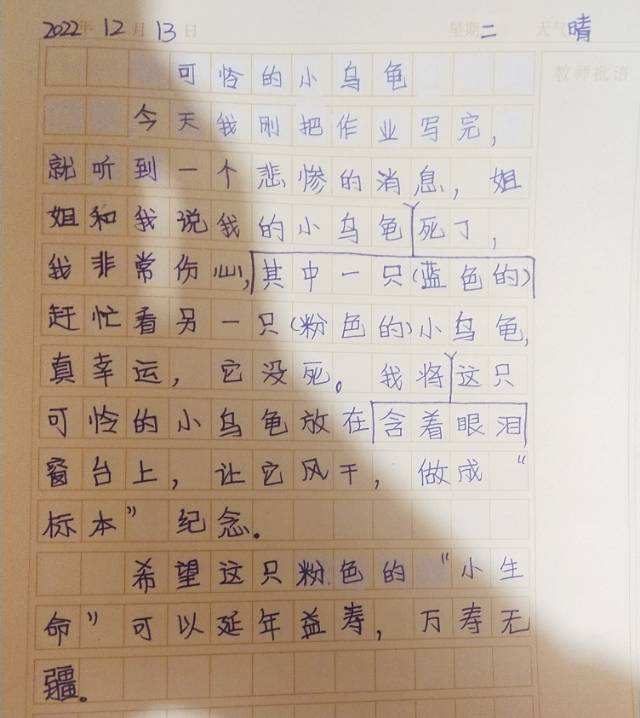 2022年 12月 13日 星期二 天气晴
可怜的小乌龟
教师批语
今天我刚把作业写完，
就听到一个悲惨的消息，姐
姐和我说我的小乌龟死了，
我非常伤心，其中一只(蓝色的)
赶忙看另一只(粉色的)小乌龟，
真幸运，它没死。我将这只
可怜的小乌龟放在含着眼泪
窗台上，让它风干，做成“
标本”纪念。
希望这只粉色的“小生
命”可以延年益寿，万寿无
疆。